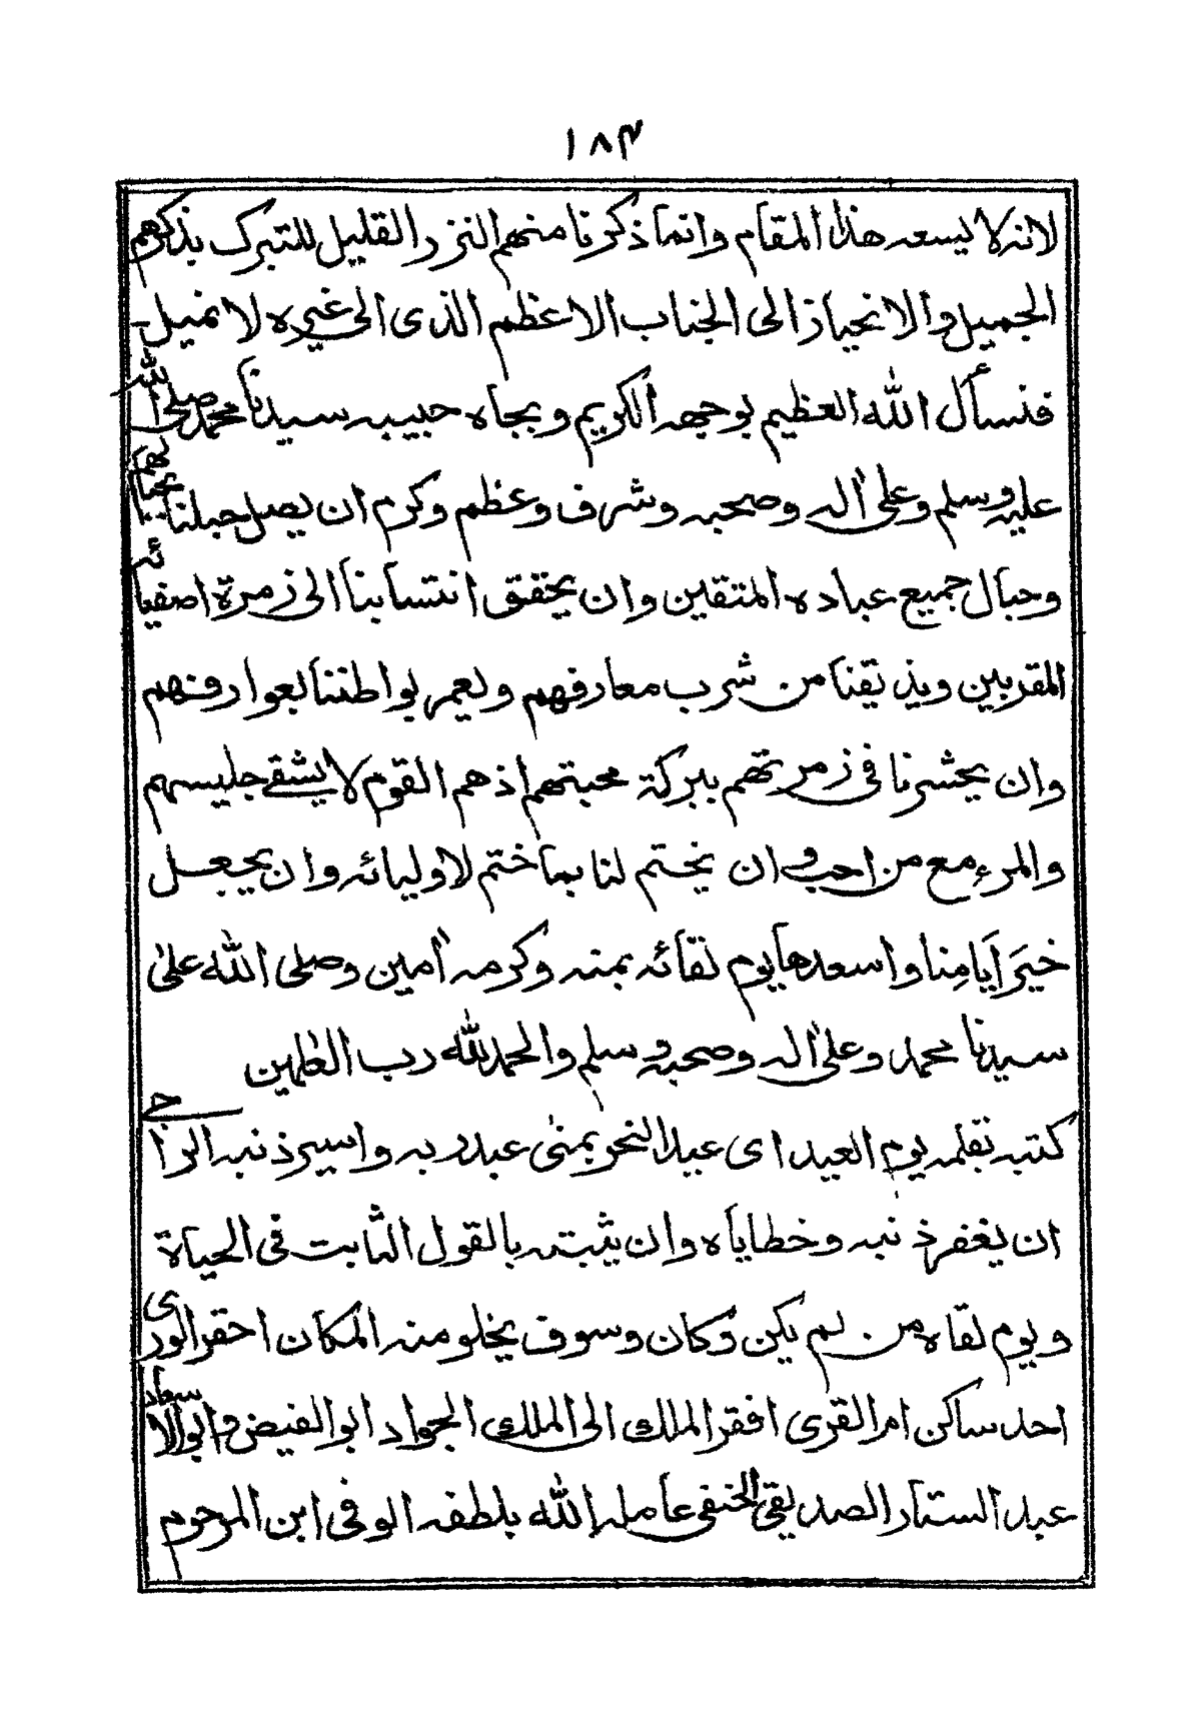 ١٨٣
لانه لا يسعه هذا المقام وانما ذكرنا منهم النزر القليل للتبرك بذكرهم
الجميل والانحياز الى الجناب الاعظم الذى الى غيره لا نميل
فنسأل الله العظيم بوجهه الكريم وبجاه حبيبه سيدنا محمد صلى الله
عليه وسلم وعلى اله وصحبه وشرف وعظم وكرم ان يصل حبلنا بحبالهم
وحبال جميع عباده المتقين وان يحقق انتسابنا الى زمرة اصفيائه
المقربين ويذيقنا من شرب معارفهم ويعمر بواطننا بعوارفهم
وان يحشرنا فى زمرتهم ببركة محبتهم اذ هم القوم لا يشقى جليسهم
والمرء مع من احب وان يختم لنا بما ختم لاوليائه وان يجعل
خيَر اَيامِنا واسعدها يوم لقائه بمنه وكرمه اٰمين وصلى الله على
سيدنا محمد وعلى اٰله وصحبه وسلم والحمد لله رب العٰلمين
كتبه بقلمه يوم العيد اى عيد النحر بمنى عبد ربه واسير ذنبه الراجى
ان يغفر ذنبه وخطاياه وان يثبته بالقول الثابت فى الحياة
ويوم لقاه من لم يكن وكان وسوف يخلو منه المكان احقر الورى
احد ساكن ام القرى افقر الملك الى الملك الجواد ابو الفيض وابو الاسعاد
عبد الستار الصديقى الحنفى عامله الله بلطفه الوفى ابن المرحوم